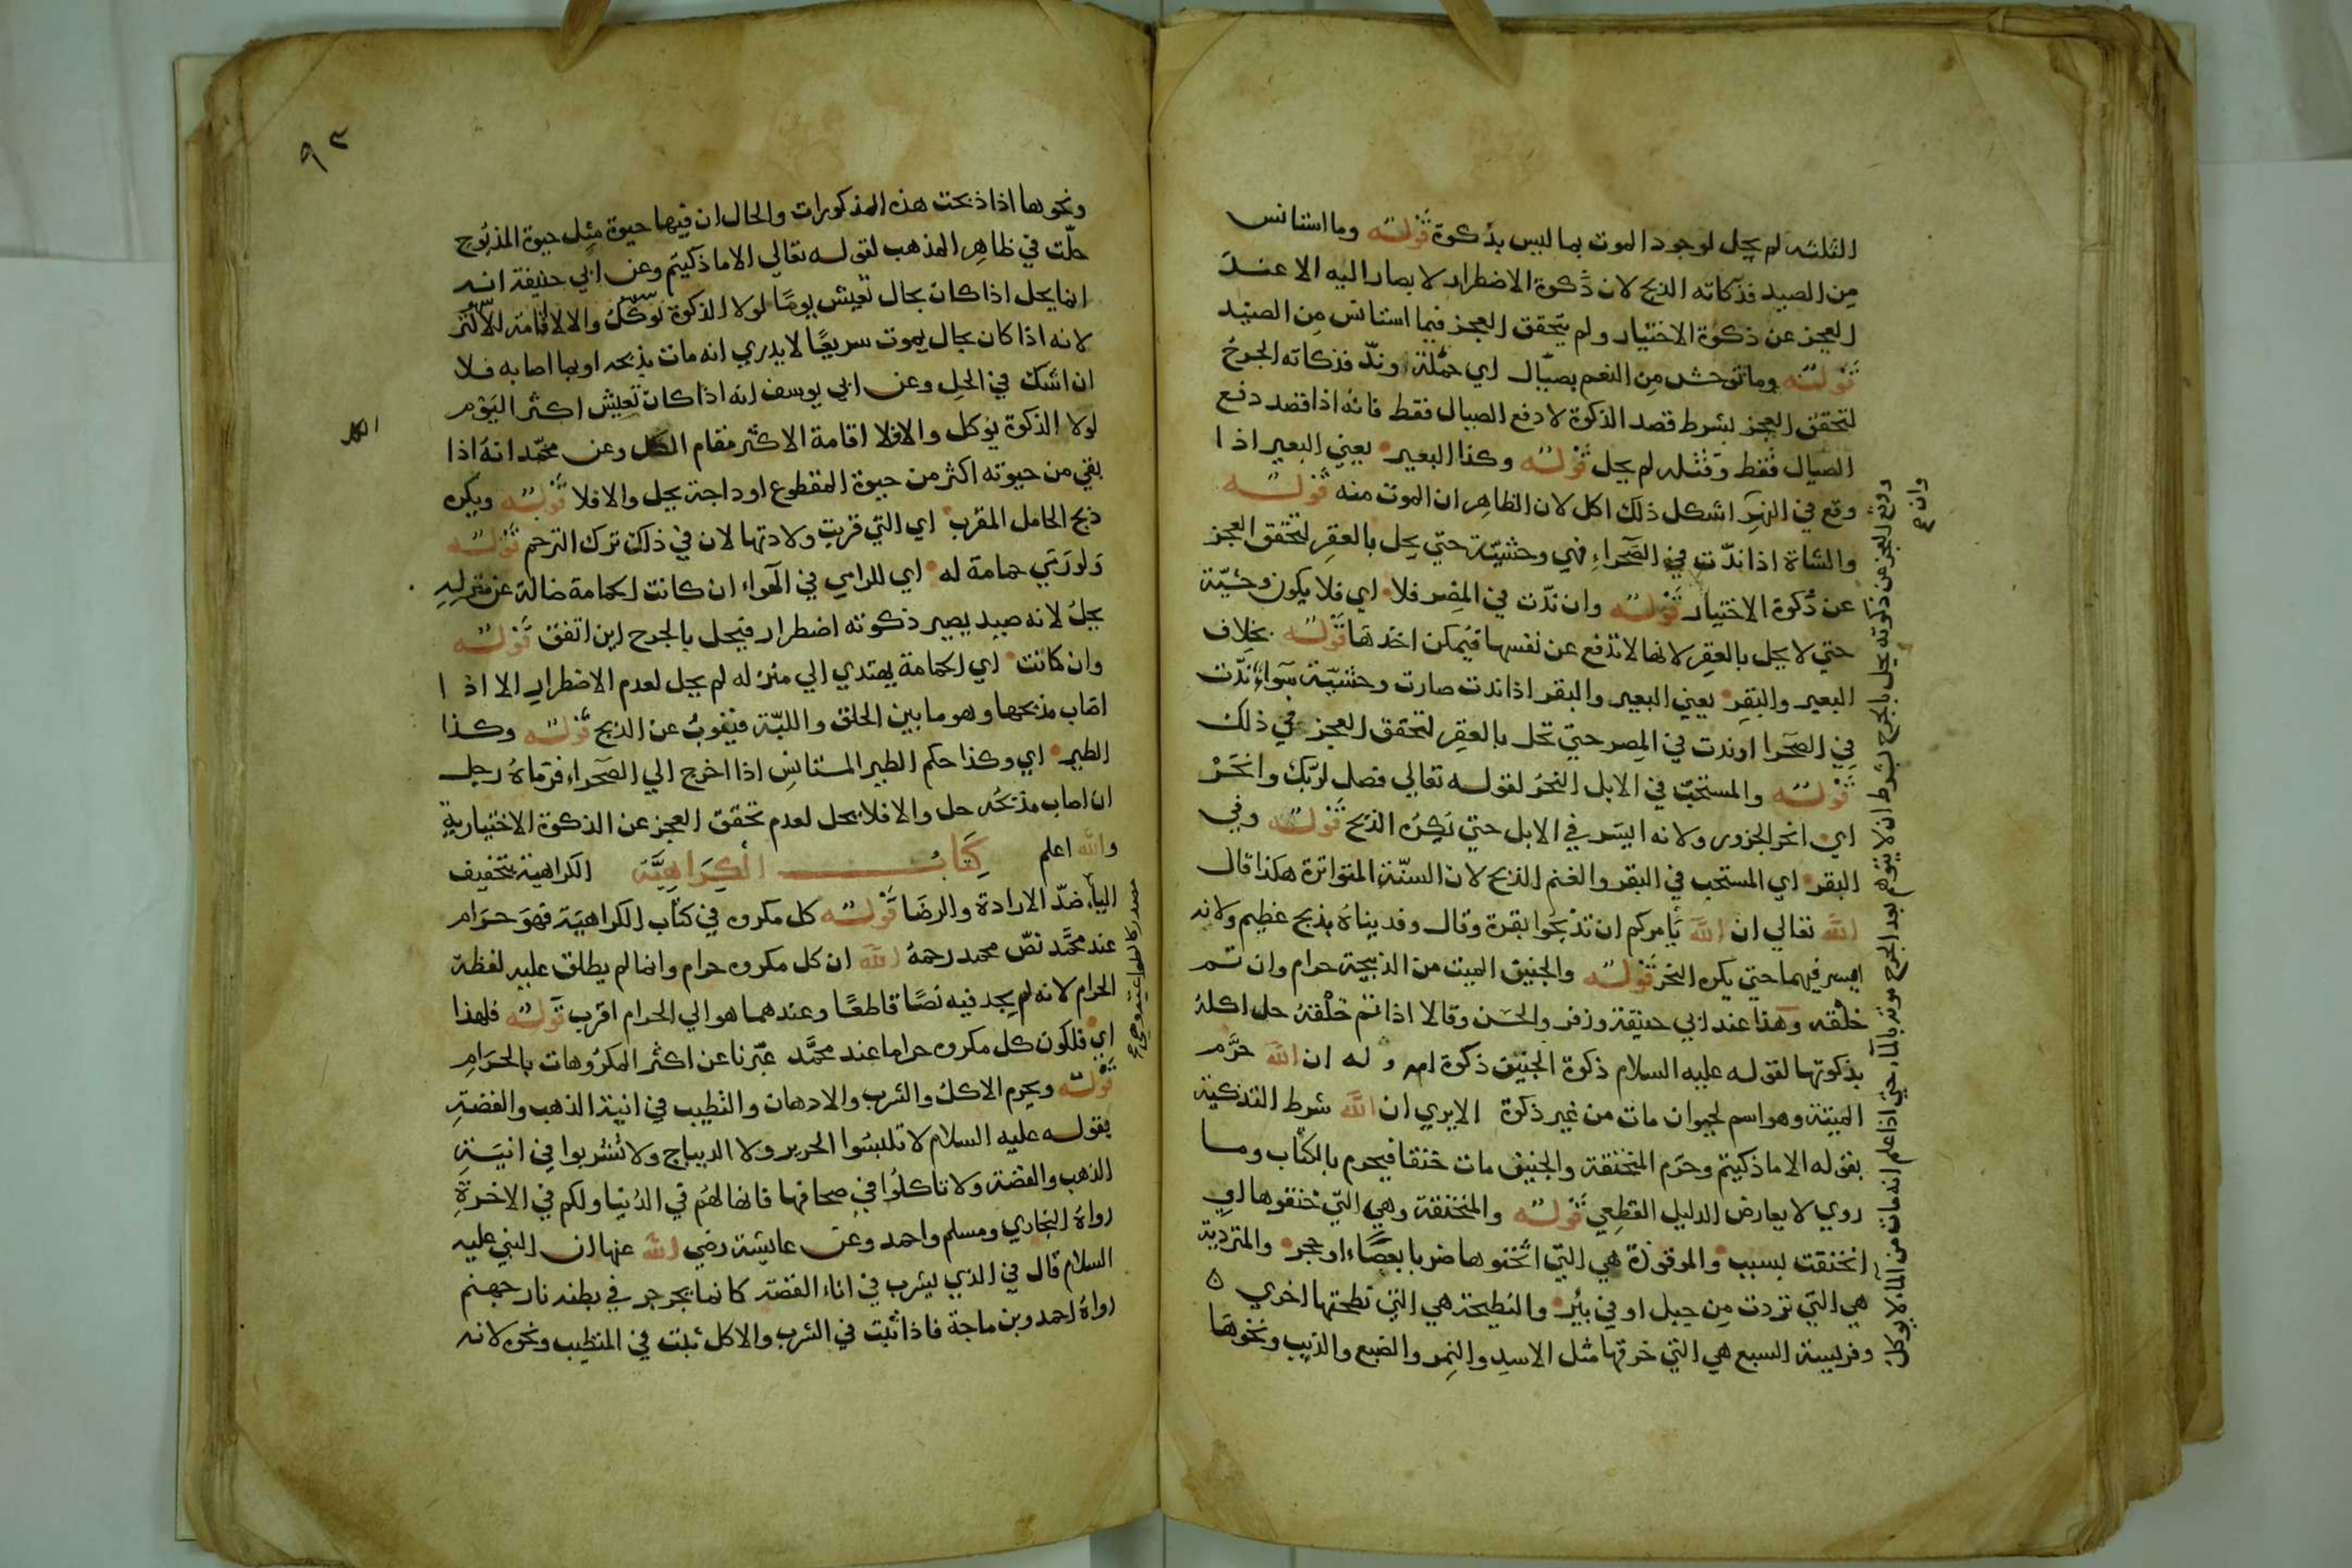 الثلثه لم يحل لوجود الموت بما ليس بذكوة قوله وما استانس
من الصيد فذكاته الذبح لان ذكوة الاضطرار لا يصار اليه الا عند
العجز عن ذكوة الاختيار ولم يتحقق العجز فيما استانس من الصيد
قوله وما توحش من النعم بصيال اي حملة وندّ فذكاته الجرح
لتحقق العجز بشرط قصد الذكوة لا دفع الصيال فقط فانه اذا قصد دفع
الصيال فقط وقتله لم يحل قوله وكذا البعير يعني البعير اذا
وقع في البير اشكل ذلك اكل لان الظاهر ان الموت منه قوله
والشاة اذا ندّت في الصحراء فهي وحشيّة حتي يحل بالعقر لتحقق العجز
عن ذكوة الاختيار قوله وان ندّت في المصر فلا اي فلا يكون وحشيّة
حتي لا يحل بالعقر لانها لا تدفع عن نفسها فيمكن اخذها قوله بخلاف
البعير والبقر يعني البعير والبقر اذا ندت صارت وحشيّة سواء ندّت
في الصحرا او ندت في المصر حتي تحل بالعقر لتحقق العجز في ذلك
قوله والمستحبّ في الابل النحر لقوله تعالي فصل لربّك وانحَرْ
اي انحر الجزور ولانه ايسر في الابل حتي يكره الذبح قوله وفي
البقر اي المستحب في البقر والغنم الذبح لان السنّة المتواترة هكذا قال
الله تعالي ان الله يأمركم ان تذبحوا بقرة وقال وفديناه بذبح عظيم ولانه
ايسر فيهما حتي يكره النحر قوله والجنين الميت من الذبيحة حرام وان تم
خلقه وهذا عند ابي حنيفة وزفر والحسن وقالا اذا تم خلقه حل اكله
بذكوتها لقوله عليه السلام ذكوة الجنين ذكوة امه وله ان الله حرّم
الميتة وهو اسم لحيوان مات من غير ذكوة الا يري ان الله شرط التذكية
بقوله الا ما ذكيتم وحرّم المنخنقة والجنين مات خنقا فيحرم بالكتاب وما
روي لا يعارض الدليل القطعي قوله والمنخنقة وهي التي خنقوها اي
انخنقت بسبب والموقوذة هي التي اثخنوها ضربا بعصًاء او حجر والمتردية
هي التي تردت من جبل او في بئر والنطيحة هي التي نطحتها اخري
وفريسة السبع هي التي خرقها مثل الاسد والنمر والضبع والذيب ونحوها
وان
وقع العجز عن ذكوته يحل بالجرح بشرط ان لا يتوهم بعد الجرح موته بالماء حتي اذا علم انه مات من الماء لا يوكل
٩٢
ونحوها اذا ذبحت هذه المذكورات والحال ان فيها حيوة مثل حيوة المذبوح
حلّت في ظاهر المذهب لقوله تعالي الا ما ذكيتم وعن ابي حنيفة انه
انما يحل اذا كان بحال تعيش يومًا لولا الذكوة
لانه اذا كان بحال يموت سريعًا لا يدري انه مات بذبحه او بما اصابه فلا
ان اشك في الحل وعن ابي يوسف انه اذا كان تعيش اكثر اليوم
لولا الذكوة يوكل والا فلا اقامة الاكثر مقام الكل وعن محمّد انه اذا
الكل
بقي من حيوته اكثر من حيوة المقطوع اوداجة يحل والا فلا قوله ويكره
ذبح الحامل المقرب اي التي قربت ولادتها لان في ذلك ترك الترحم قوله
ولو رمي حمامة له اي للرامي في الهواء ان كانت الحمامة ضالة عن منزله
يحل لانه صيد يصير ذكوته اضطرار فيحل بالجرح اين اتفق قوله
وان كانت اي الحمامة يهتدي الي منزله لم يحل لعدم الاضطرار الا اذا
اصاب مذبحها وهو ما بين الحلق واللبّة فيتوب عن الذبح قوله وكذا
الطير اي وكذا حكم الطير المستانس اذا اخرج الي الصحراء فرماه رجل
ان اصاب مذبحه حل والا فلا يحل لعدم تحقق العجز عن الذكوة الاختيارية
والله اعلم كتاب الكراهيّة الكراهية بتخفيف
الياء ضدّ الارادة والرضا قوله كل مكروه في كتاب الكراهيّة فهو حرام
عند محمّد نصّ محمد رحمه الله ان كل مكروه حرام وانما لم يطلق عليه لفظة
الحرام لانه لم يجد فيه نصًا قاطعًا وعندهما هو الي الحرام اقرب قوله فلهذا
اي فلكون كل مكروه حراما عند محمّد عبّرنا عن اكثر المكروهات بالحرام
قوله ويحرم الاكل والشرب والادهان والتطيب في انية الذهب والفضة
بقوله عليه السلام لا تلبسوا الحرير ولا الديباج ولا تشربوا في انية
الذهب والفضة ولا تاكلوا في صحافها فانها لهم في الدنيا ولكم في الاخرة
رواه البخاري ومسلم واحمد وعن عايشة رضي الله عنها ان النبي عليه
السلام قال في الذي يشرب في اناء الفضة كانما يجرجر في بطنه نار جهنم
رواه احمد وبن ماجة فاذا ثبت في الشرب والاكل ثبت في التطيب ونحوه لانه